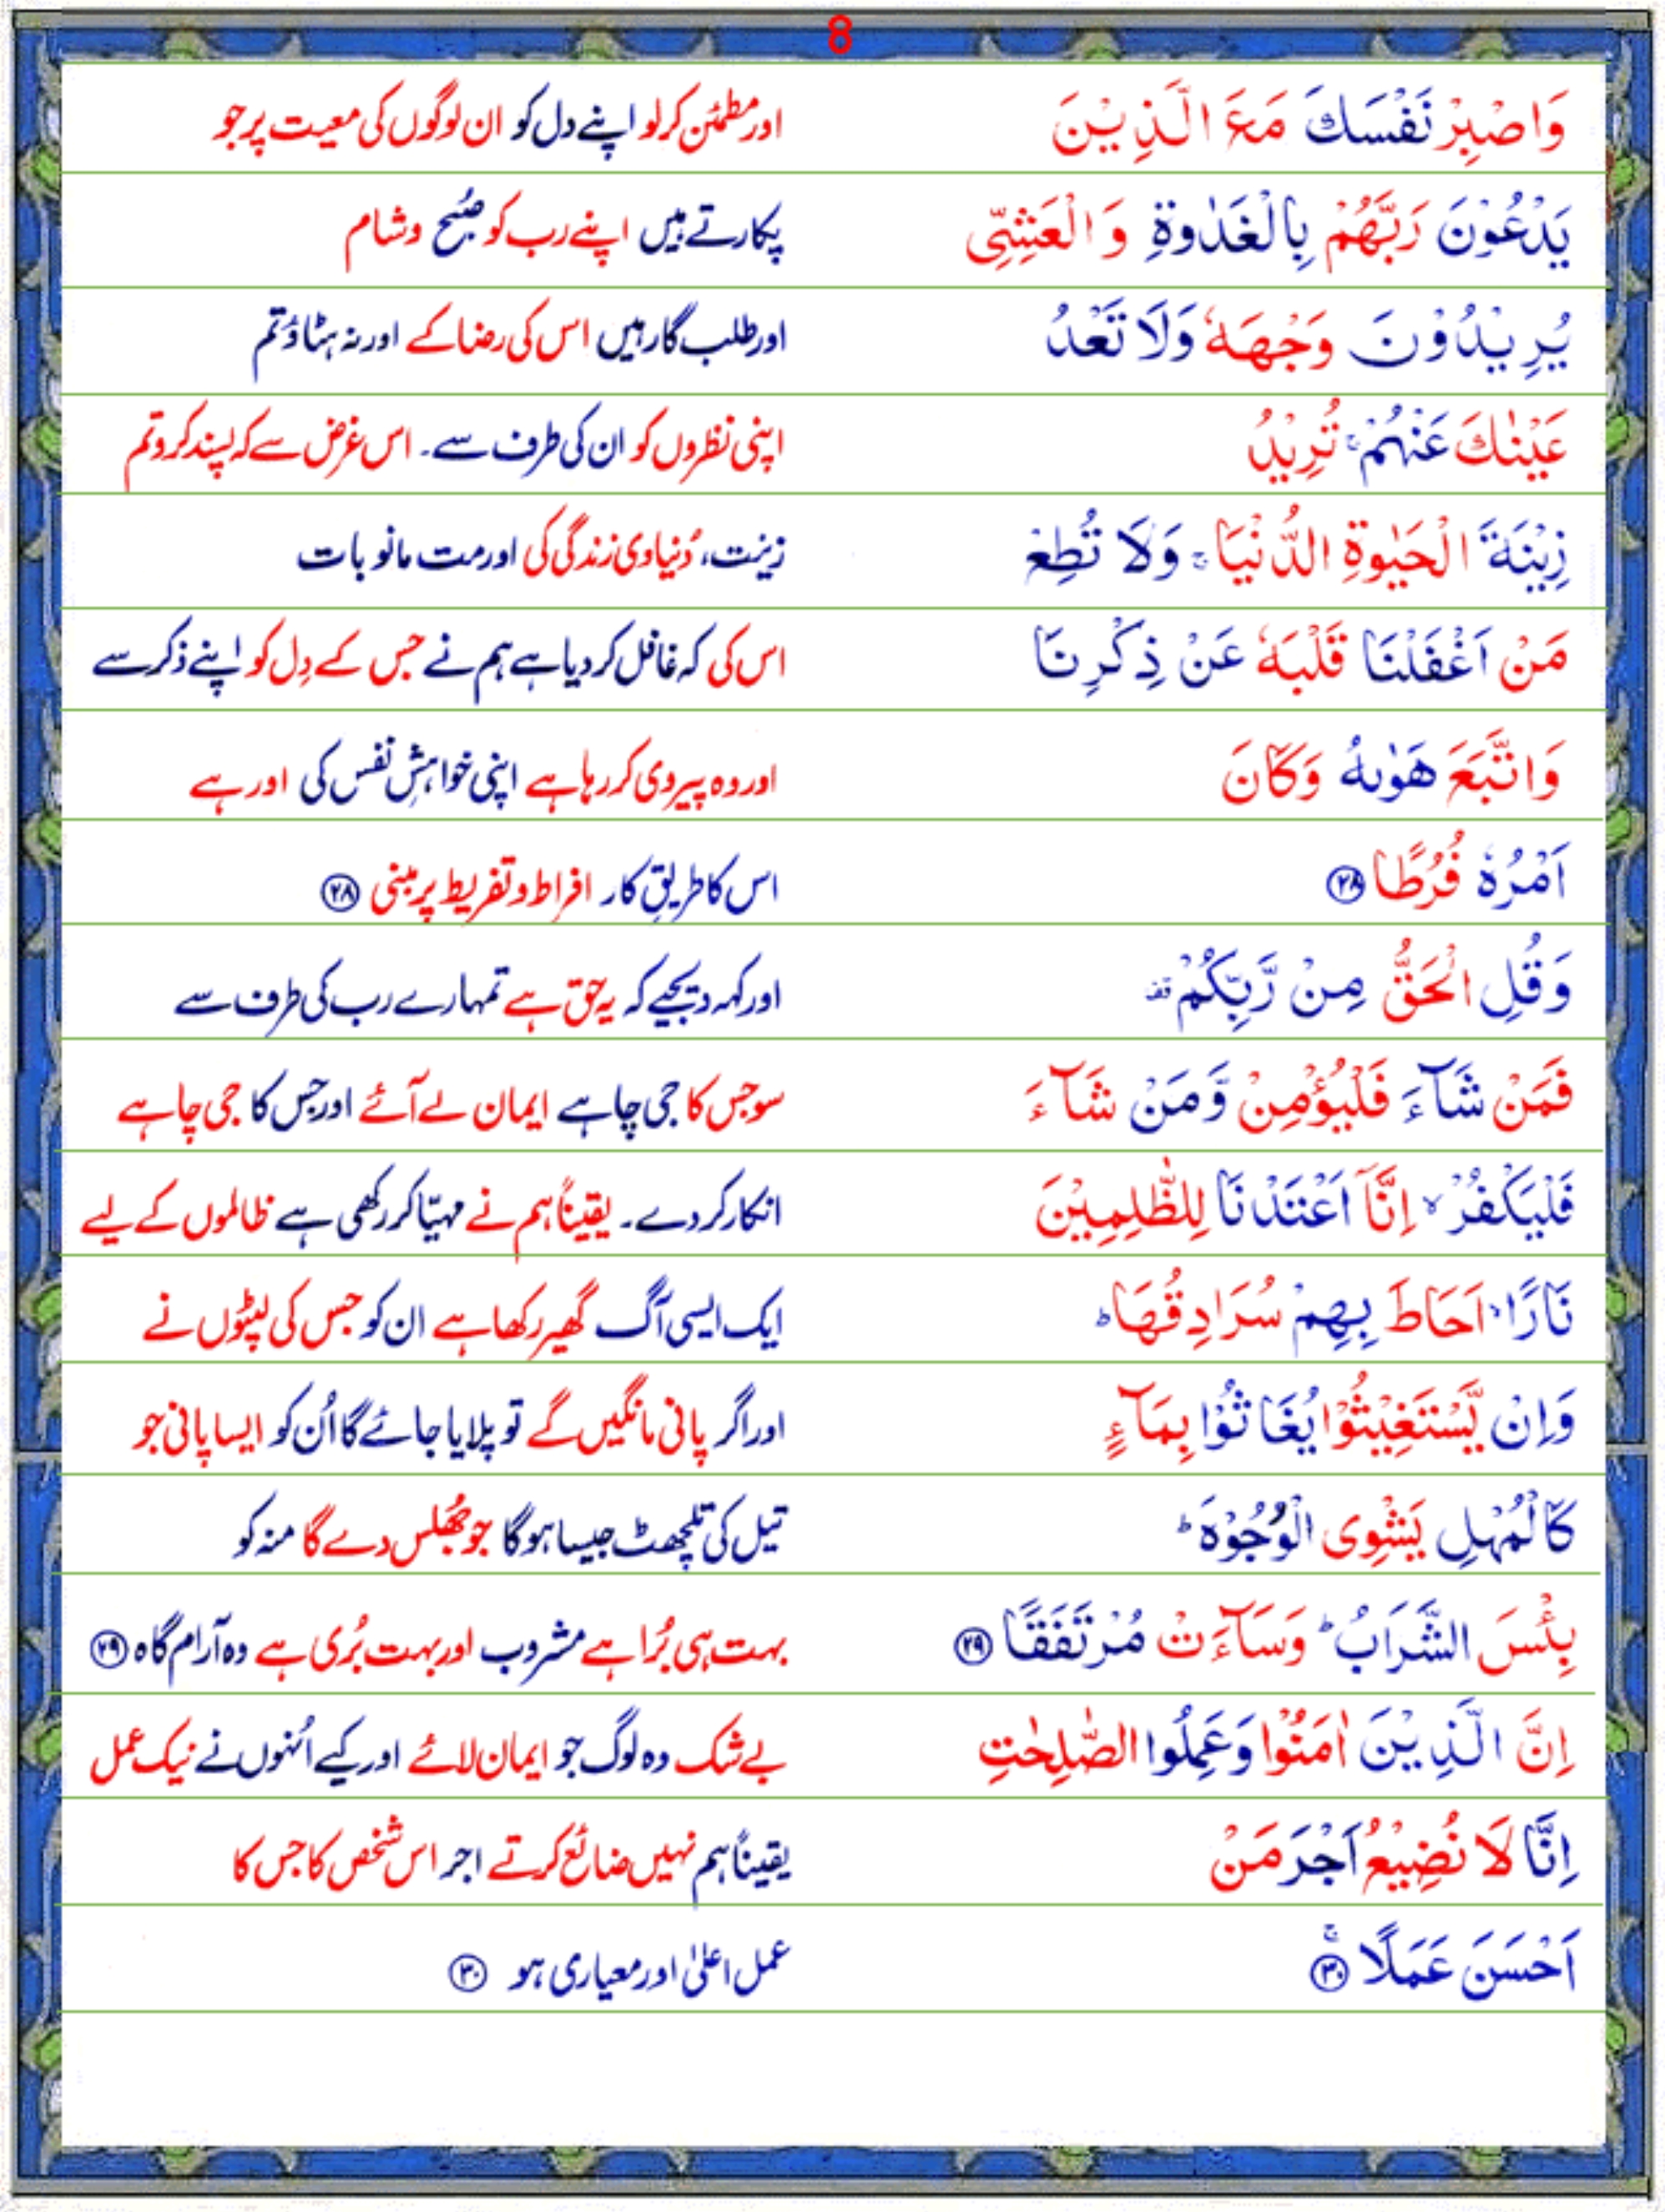 8
وَاصْبِرْ نَفْسَكَ مَعَ الَّذِيْنَ اور مطمئن کرلو اپنے دل کو ان لوگوں کی معیت پر جو
يَدْعُوْنَ رَبَّهُمْ بِالْغَدٰوةِ وَالْعَشِىِّ پکارتے ہیں اپنے رب کو صُبح وشام
يُرِيْدُوْنَ وَجْهَهٗ وَلَا تَعْدُ اور طلب گار ہیں اس کی رضا کے اور نہ ہٹاؤ تم
عَيْنٰكَ عَنْهُمْ ۚ تُرِيْدُ اپنی نظروں کو ان کی طرف سے۔ اس غرض سے کہ پسند کرو تم
زِيْنَةَ الْحَيٰوةِ الدُّنْيَا ۚ وَلَا تُطِعْ زینت، دُنیاوی زندگی کی اور مت مانو بات
مَنْ اَغْفَلْنَا قَلْبَهٗ عَنْ ذِكْرِنَا اس کی کہ غافل کردیا ہے ہم نے جس کے دِل کو اپنے ذکر سے
وَاتَّبَعَ هَوٰىهُ وَكَانَ اور وہ پیروی کر رہا ہے اپنی خواہشِ نفس کی اور ہے
اَمْرُهٗ فُرُطًا ۲۸ اس کا طریقِ کار افراط وتفریط پر مبنی ۲۸
وَقُلِ الْحَقُّ مِنْ رَّبِّكُمْ ۟ قف اور کہہ دیجیے کہ یہ حق ہے تمہارے رب کی طرف سے
فَمَنْ شَآءَ فَلْيُؤْمِنْ وَّمَنْ شَآءَ سو جس کا جی چاہے ایمان لے آئے اور جس کا جی چاہے
فَلْيَكْفُرْ ۙ اِنَّاۤ اَعْتَدْنَا لِلظّٰلِمِيْنَ انکار کردے۔ یقیناً ہم نے مہیّا کر رکھی ہے ظالموں کے لیے
نَارًا ۙ اَحَاطَ بِهِمْ سُرَادِقُهَا ؕ ایک ایسی آگ گھیر رکھا ہے ان کو جس کی لپٹوں نے
وَاِنْ يَّسْتَغِيْثُوْا يُغَاثُوْا بِمَآءٍ اور اگر پانی مانگیں گے تو پلایا جائے گا اُن کو ایسا پانی جو
كَالْمُهْلِ يَشْوِى الْوُجُوْهَ ؕ تیل کی تلچھٹ جیسا ہوگا جو جُھلس دے گا منہ کو
بِئْسَ الشَّرَابُ ؕ وَسَآءَتْ مُرْتَفَقًا ۲۹ بہت ہی بُرا ہے مشروب اور بہت بُری ہے وہ آرام گاہ ۲۹
اِنَّ الَّذِيْنَ اٰمَنُوْا وَعَمِلُوا الصّٰلِحٰتِ بے شک وہ لوگ جو ایمان لائے اور کیے اُنہوں نے نیک عمل
اِنَّا لَا نُضِيْعُ اَجْرَ مَنْ یقیناً ہم نہیں ضائع کرتے اجر اس شخص کا جس کا
اَحْسَنَ عَمَلًا ۚ ۳۰ عمل اعلیٰ اور معیاری ہو ۳۰